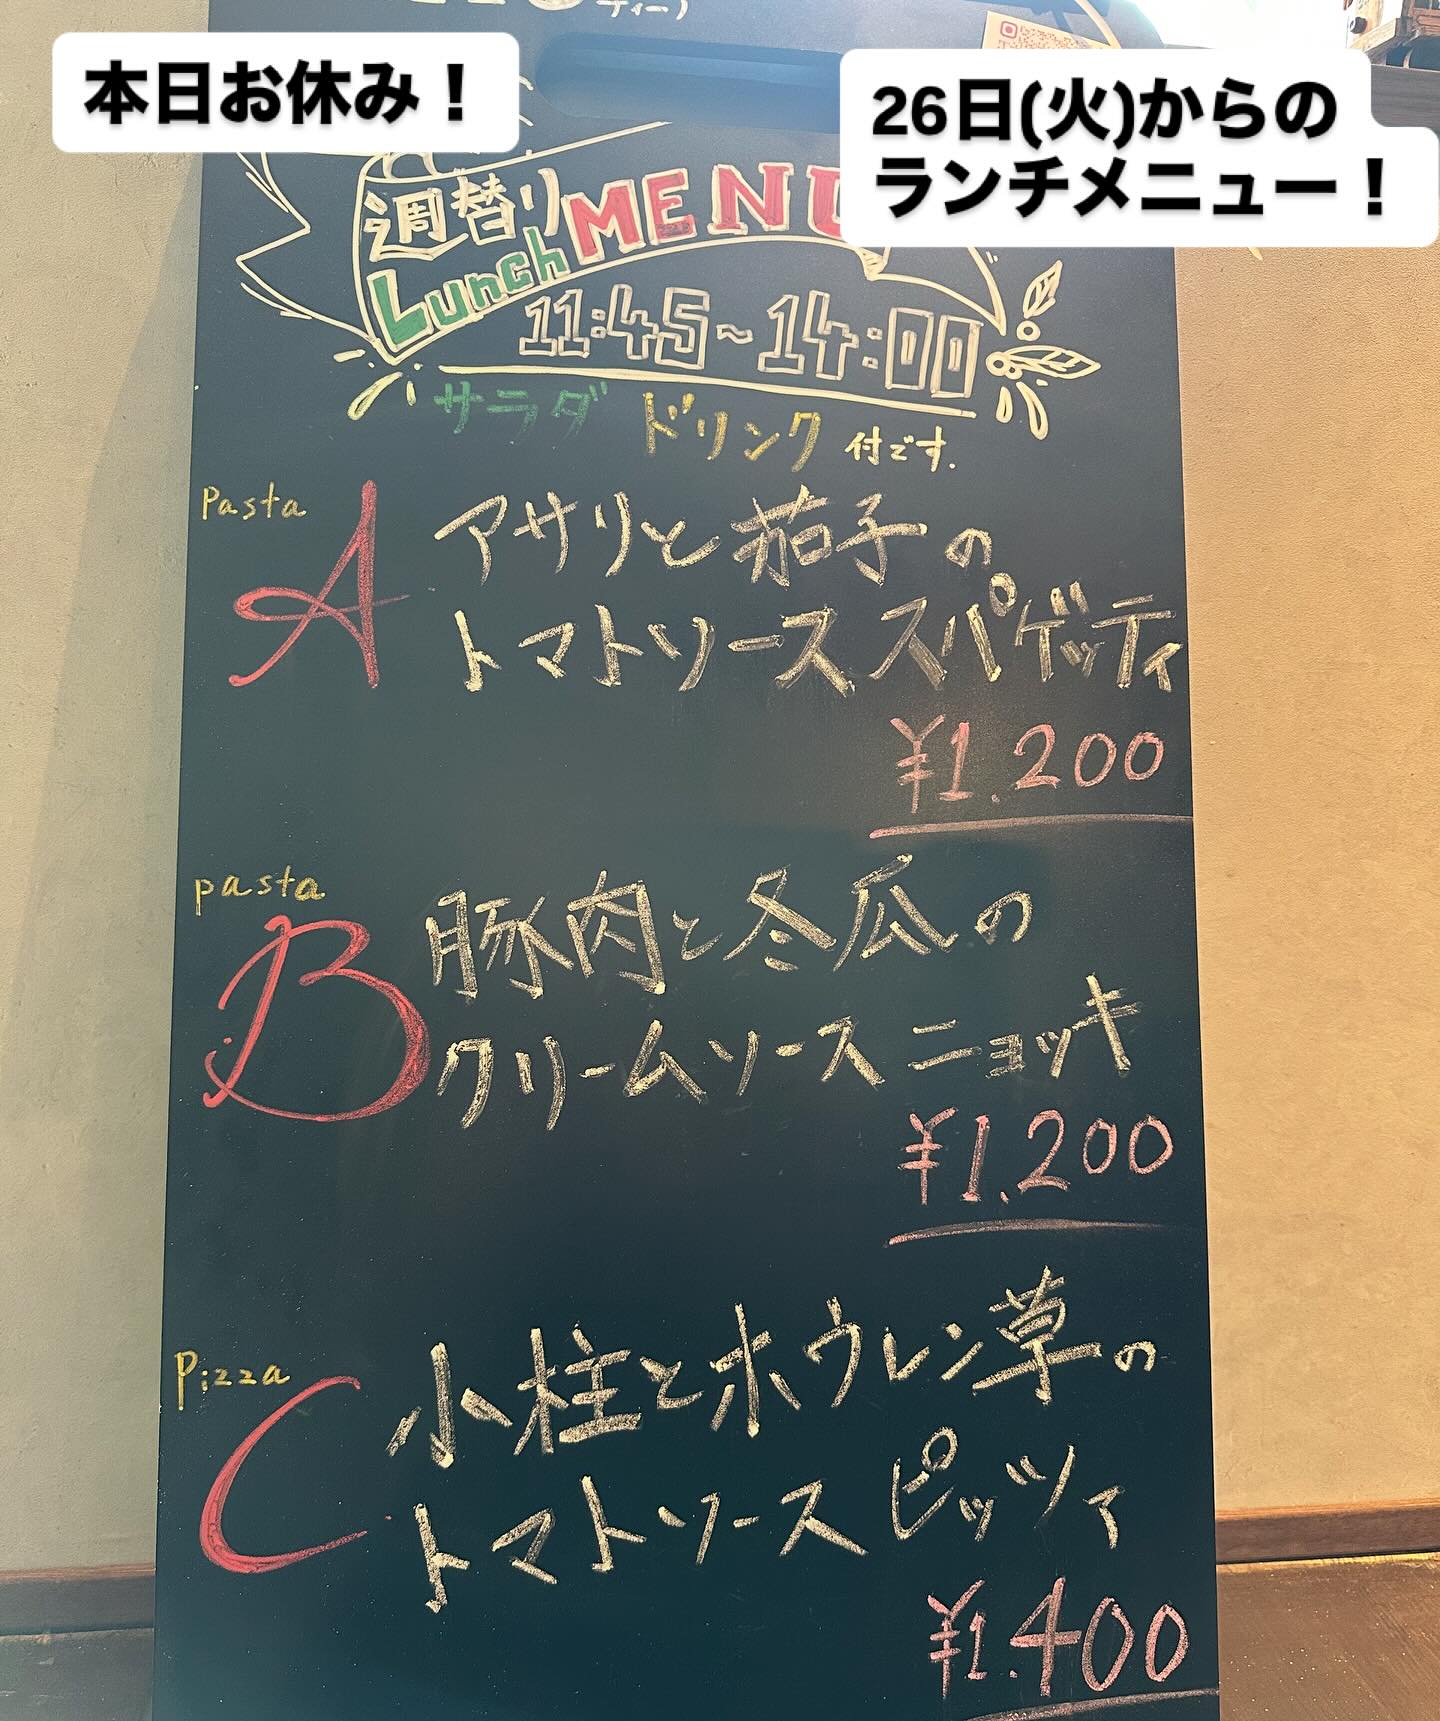 ティー)
本日お休み！
26日(火)からの
ランチメニュー！
週替り
Lunch MENU
11:45~14:00
サラダ ドリンク 付です.
Pasta
A アサリと茄子の
トマトソース スパゲッティ
¥1.200
pasta
B 豚肉と冬瓜の
クリームソース ニョッキ
¥1.200
Pizza
C 小柱とホウレン草の
トマトソース ピッツァ
¥1.400